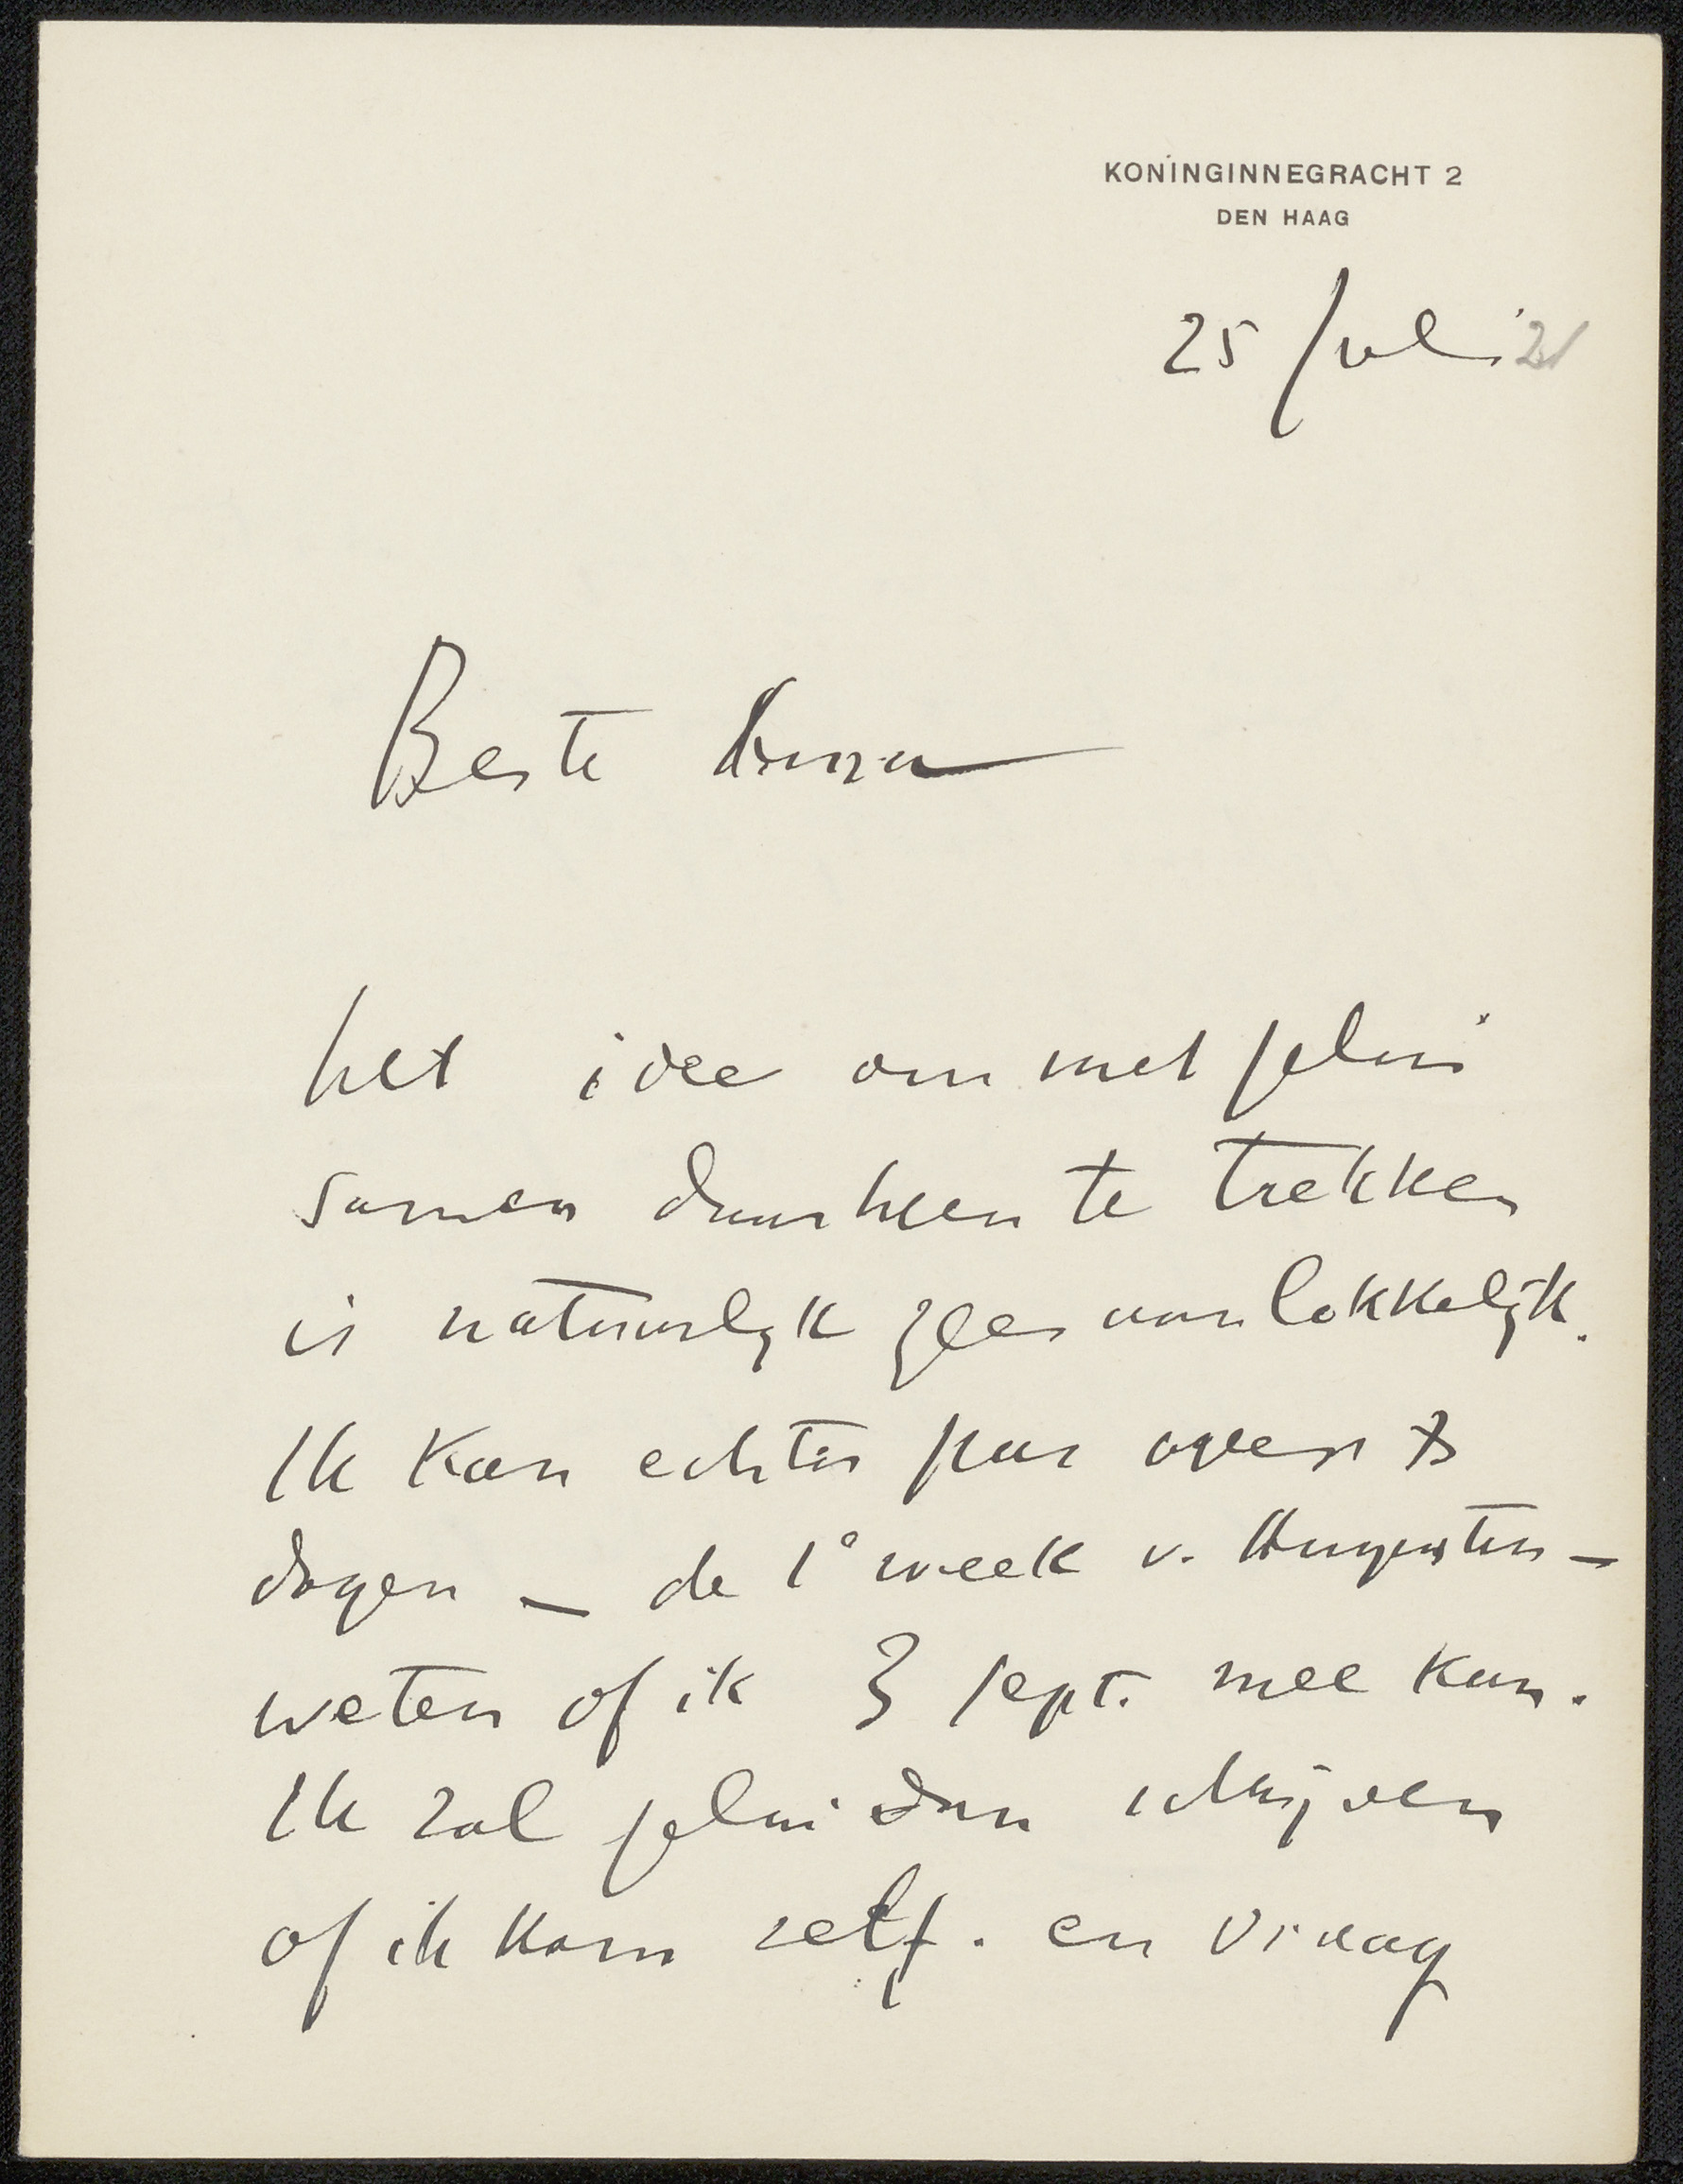 KONINGINNEGRACHT 2
DEN HAAG
25 Juli '21
Beste
het idee om met jelui
samen daarheen te trekken
is natuurlyk zeer aanlokkelijk.
Ik kan echter pas over
dagen — de 1e week v. Augustus —
weten of ik 3 sept. mee kan.
Ik zal jelui dan schrijven
of ik kom zelf. en vraag